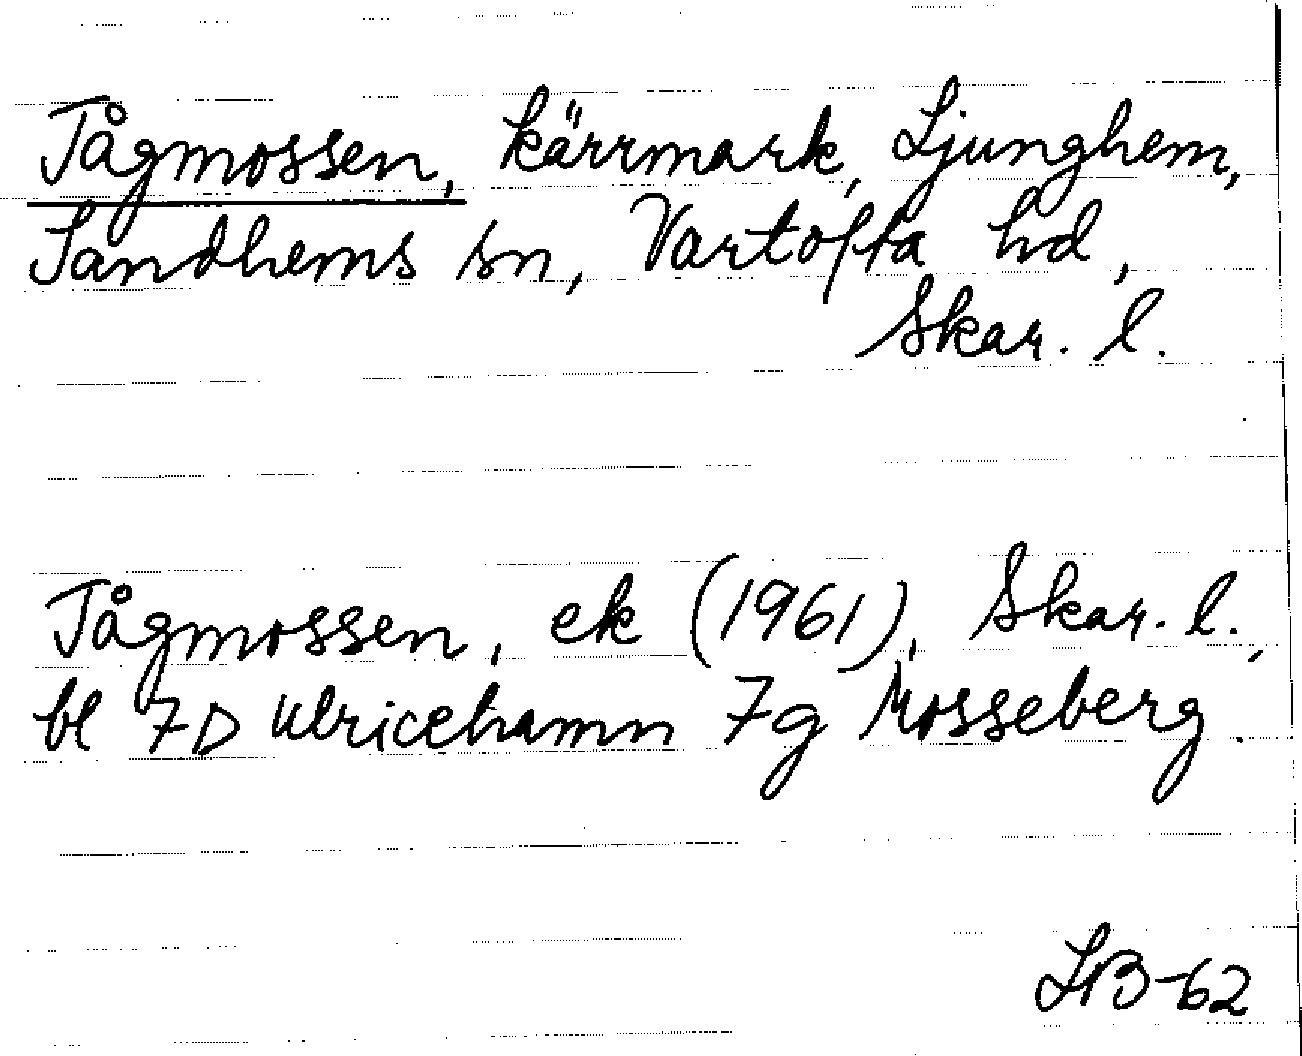 Tågmossen, kärrmark, Ljunghem,
Sandhems sn, Vartofta hd,
Skar. l.
Tågmossen, ek (1961), Skar. l.,
bl 7D Ulricehamn 7g Mosseberg.
LB-62